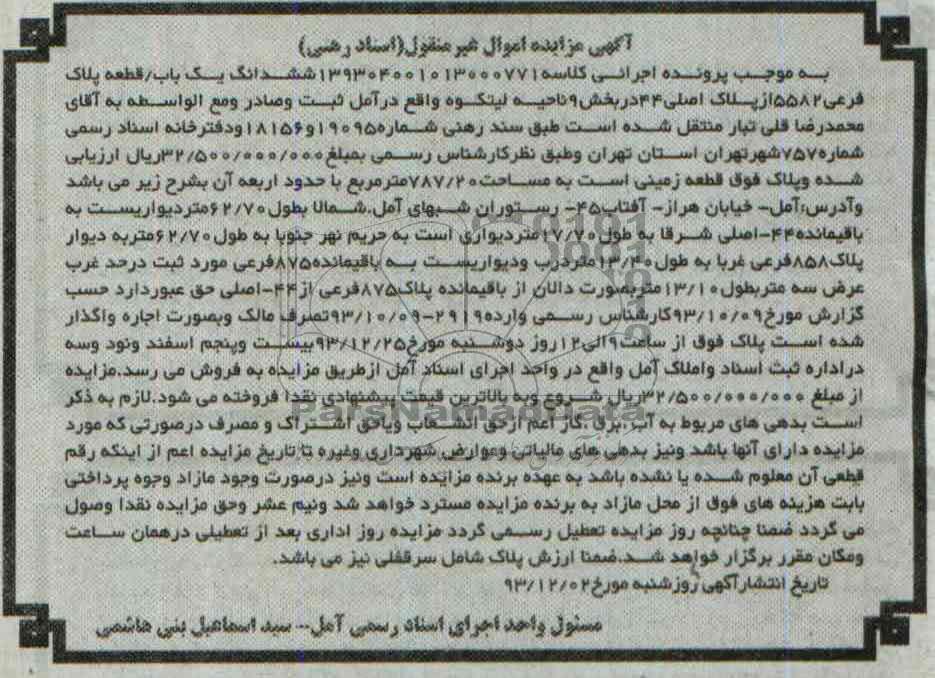 آگهی مزایده اموال غیر منقول(اسناد رهنی)
به موجب پرونده اجرائی کلاسه۱۳۹۳۰۴۰۰۱۰۱۳۰۰۰۷۷۱ششدانگ یک باب/قطعه پلاک
فرعی۵۵۸۲ازپلاک اصلی۴۴دربخش۹ناحیه لیتکوه واقع درآمل ثبت وصادر ومع الواسطه به آقای
محمدرضا قلی تبار منتقل شده است طبق سند رهنی شماره۱۹۰۹۵و۱۸۱۵۶ودفترخانه اسناد رسمی
شماره۷۵۷شهرتهران استان تهران وطبق نظرکارشناس رسمی بمبلغ۳۲/۵۰۰/۰۰۰/۰۰۰ریال ارزیابی
شده وپلاک فوق قطعه زمینی است به مساحت۷۸۷/۲۰مترمربع با حدود اربعه آن بشرح زیر می باشد
وآدرس:آمل- خیابان هراز- آفتاب۴۵- رستوران شبهای آمل.شمالا بطول۶۲/۷۰متردیواریست به
باقیمانده۴۴-اصلی شرقا به طول۱۷/۷۰متردیواری است به حریم نهر جنوبا به طول۶۲/۷۰متربه دیوار
پلاک۸۵۸فرعی غربا به طول۱۳/۴۰متردرب ودیواریست به باقیمانده۸۷۵فرعی مورد ثبت درحد غرب
عرض سه متربطول۱۳/۱۰متربصورت دالان از باقیمانده پلاک۸۷۵فرعی از۴۴-اصلی حق عبوردارد حسب
گزارش مورخ۹۳/۱۰/۰۹کارشناس رسمی وارده۲۹۱۹-۹۳/۱۰/۰۹تصرف مالک وبصورت اجاره واگذار
شده است پلاک فوق از ساعت۹الی۱۲روز دوشنبه مورخ۹۳/۱۲/۲۵بیست وپنجم اسفند ونود وسه
دراداره ثبت اسناد واملاک آمل واقع در واحد اجرای اسناد آمل ازطریق مزایده به فروش می رسد.مزایده
از مبلغ ۳۲/۵۰۰/۰۰۰/۰۰۰ریال شروع وبه بالاترین قیمت پیشنهادی نقدا فروخته می شود.لازم به ذکر
است بدهی های مربوط به آب ،برق ،گاز اعم ازحق انشعاب ویاحق اشتراک و مصرف درصورتی که مورد
مزایده دارای آنها باشد ونیز بدهی های مالیاتی وعوارض شهرداری وغیره تا تاریخ مزایده اعم از اینکه رقم
قطعی آن معلوم شده یا نشده باشد به عهده برنده مزایده است ونیز درصورت وجود مازاد وجوه پرداختی
بابت هزینه های فوق از محل مازاد به برنده مزایده مسترد خواهد شد ونیم عشر وحق مزایده نقدا وصول
می گردد ضمنا چنانچه روز مزایده تعطیل رسمی گردد مزایده روز اداری بعد از تعطیلی درهمان ساعت
ومکان مقرر برگزار خواهد شد.ضمنا ارزش پلاک شامل سرقفلی نیز می باشد.
تاریخ انتشارآگهی روزشنبه مورخ۹۳/۱۲/۰۲
مسئول واحد اجرای اسناد رسمی آمل-- سید اسماعیل بنی هاشمی
ParsNamadData